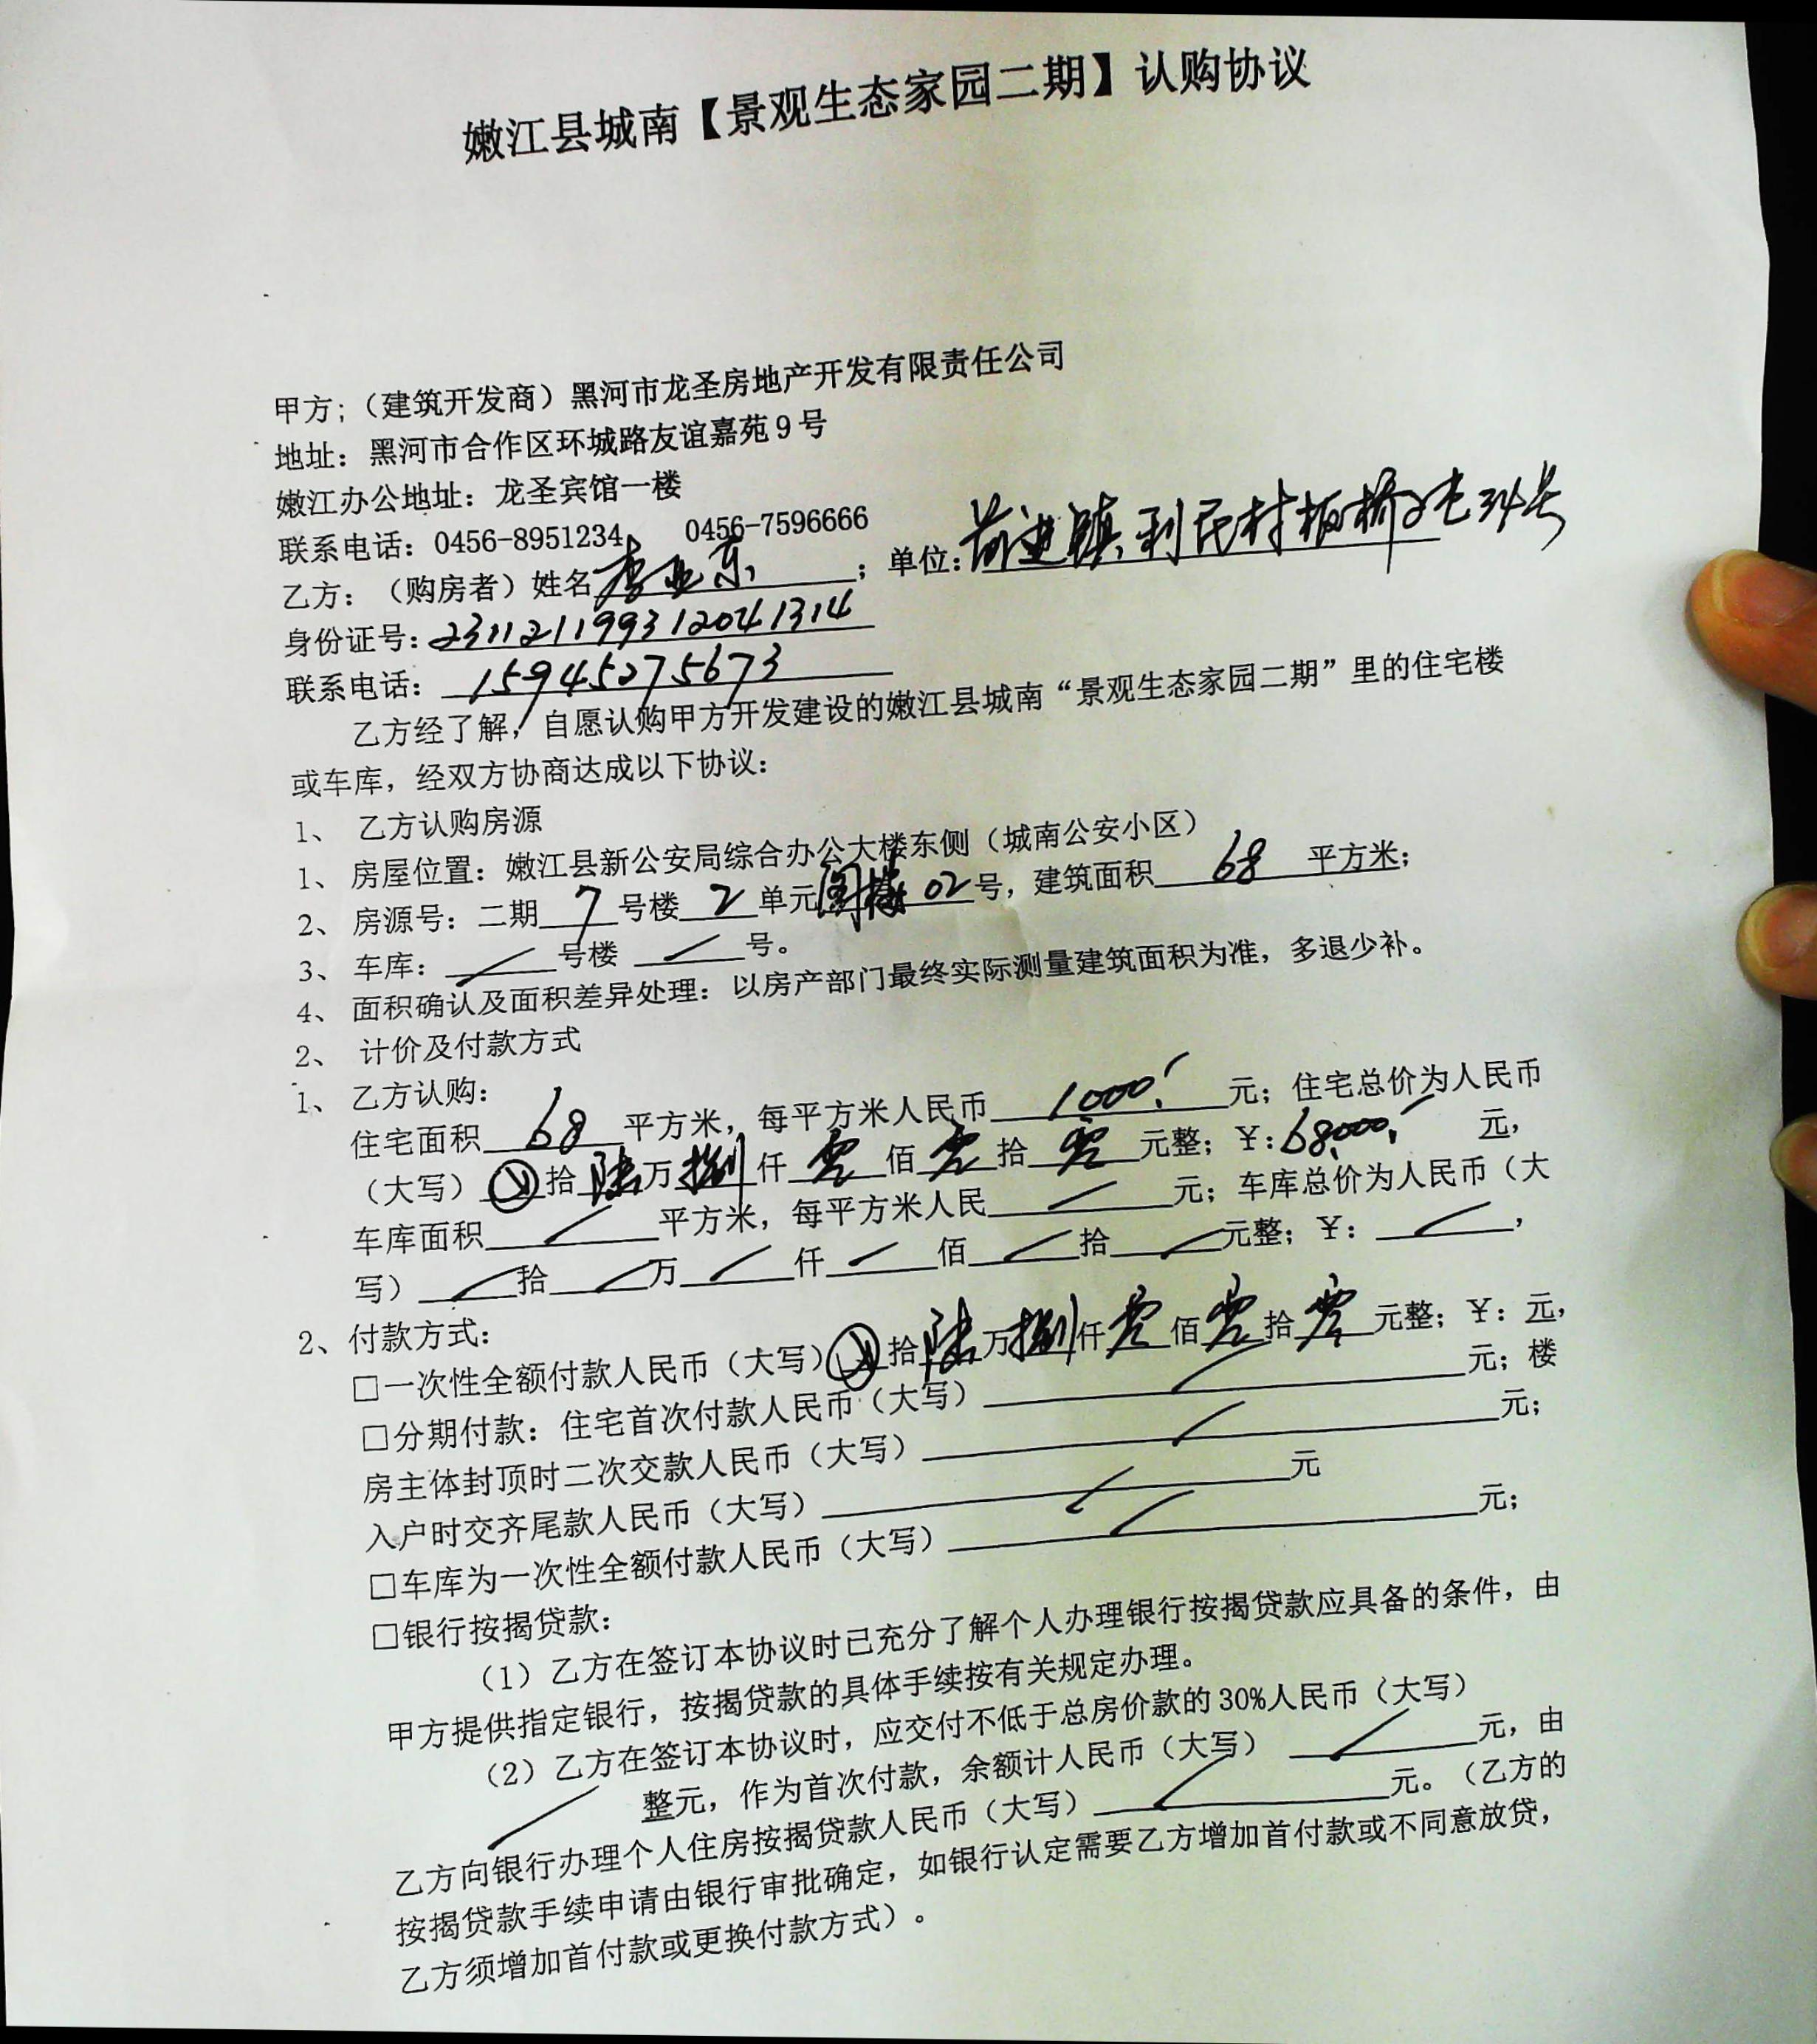 嫩江县城南【景观生态家园二期】认购协议
甲方;（建筑开发商）黑河市龙圣房地产开发有限责任公司
地址：黑河市合作区环城路友谊嘉苑9号
嫩江办公地址：龙圣宾馆一楼
联系电话：0456-8951234 0456-7596666
乙方：（购房者）姓名李亚东；单位：前进镇利民村板桥子屯34号
身份证号：231121199312041314
联系电话：15945275673
乙方经了解，自愿认购甲方开发建设的嫩江县城南“景观生态家园二期”里的住宅楼
或车库，经双方协商达成以下协议：
1、 乙方认购房源
1、 房屋位置：嫩江县新公安局综合办公大楼东侧（城南公安小区）
2、 房源号：二期 7 号楼 2 单元阁楼02号，建筑面积 68 平方米；
3、 车库： / 号楼 / 号。
4、 面积确认及面积差异处理：以房产部门最终实际测量建筑面积为准，多退少补。
2、 计价及付款方式
1、 乙方认购：
住宅面积 68 平方米，每平方米人民币 1000 元；住宅总价为人民币
（大写） 拾 陆 万 捌 仟 零 佰 零 拾 零 元整；￥:68000 元，
车库面积 / 平方米，每平方米人民 / 元；车库总价为人民币（大
写） / 拾 / 万 / 仟 / 佰 / 拾 / 元整；￥： / ，
2、付款方式：
□一次性全额付款人民币（大写） 拾 陆 万 捌 仟 零 佰 零 拾 零 元整；￥：元，
□分期付款：住宅首次付款人民币（大写） / 元；楼
房主体封顶时二次交款人民币（大写） / 元；
入户时交齐尾款人民币（大写） / 元
□车库为一次性全额付款人民币（大写） / 元；
□银行按揭贷款：
（1）乙方在签订本协议时已充分了解个人办理银行按揭贷款应具备的条件，由
甲方提供指定银行，按揭贷款的具体手续按有关规定办理。
（2）乙方在签订本协议时，应交付不低于总房价款的30%人民币（大写）
/ 整元，作为首次付款，余额计人民币（大写） / 元，由
乙方向银行办理个人住房按揭贷款人民币（大写） / 元。（乙方的
按揭贷款手续申请由银行审批确定，如银行认定需要乙方增加首付款或不同意放贷，
乙方须增加首付款或更换付款方式）。